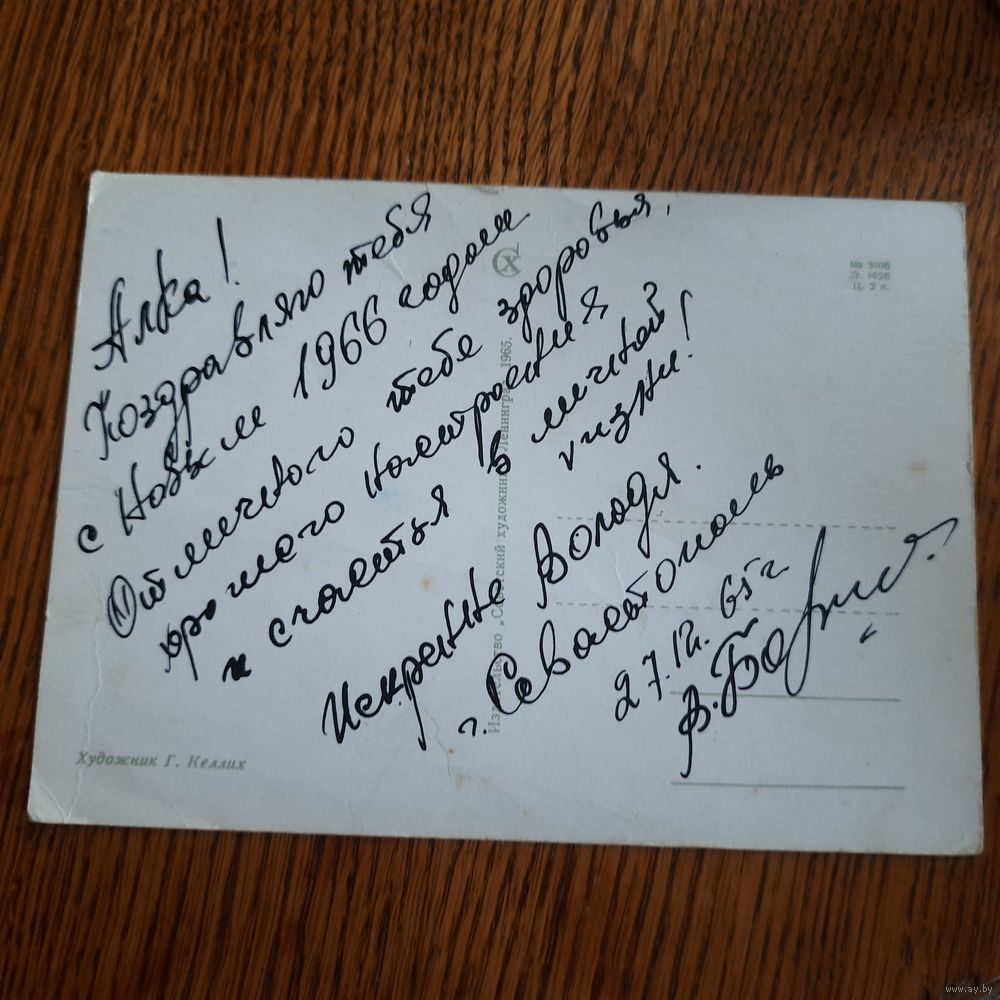 Алка!
Поздравляю тебя
с Новым 1966 годом
Отличного тебе здоровья,
прочного настроения
и счастья в личной
жизни!
Искренне Володя.
г. Севастополь
27.12.65 г.
В.
СХ
№ 3195
З. 1428
Ц. 2 к.
Издательство „Советский художник" Ленинград 1965.
Художник Г. Келлих
www.ay.by